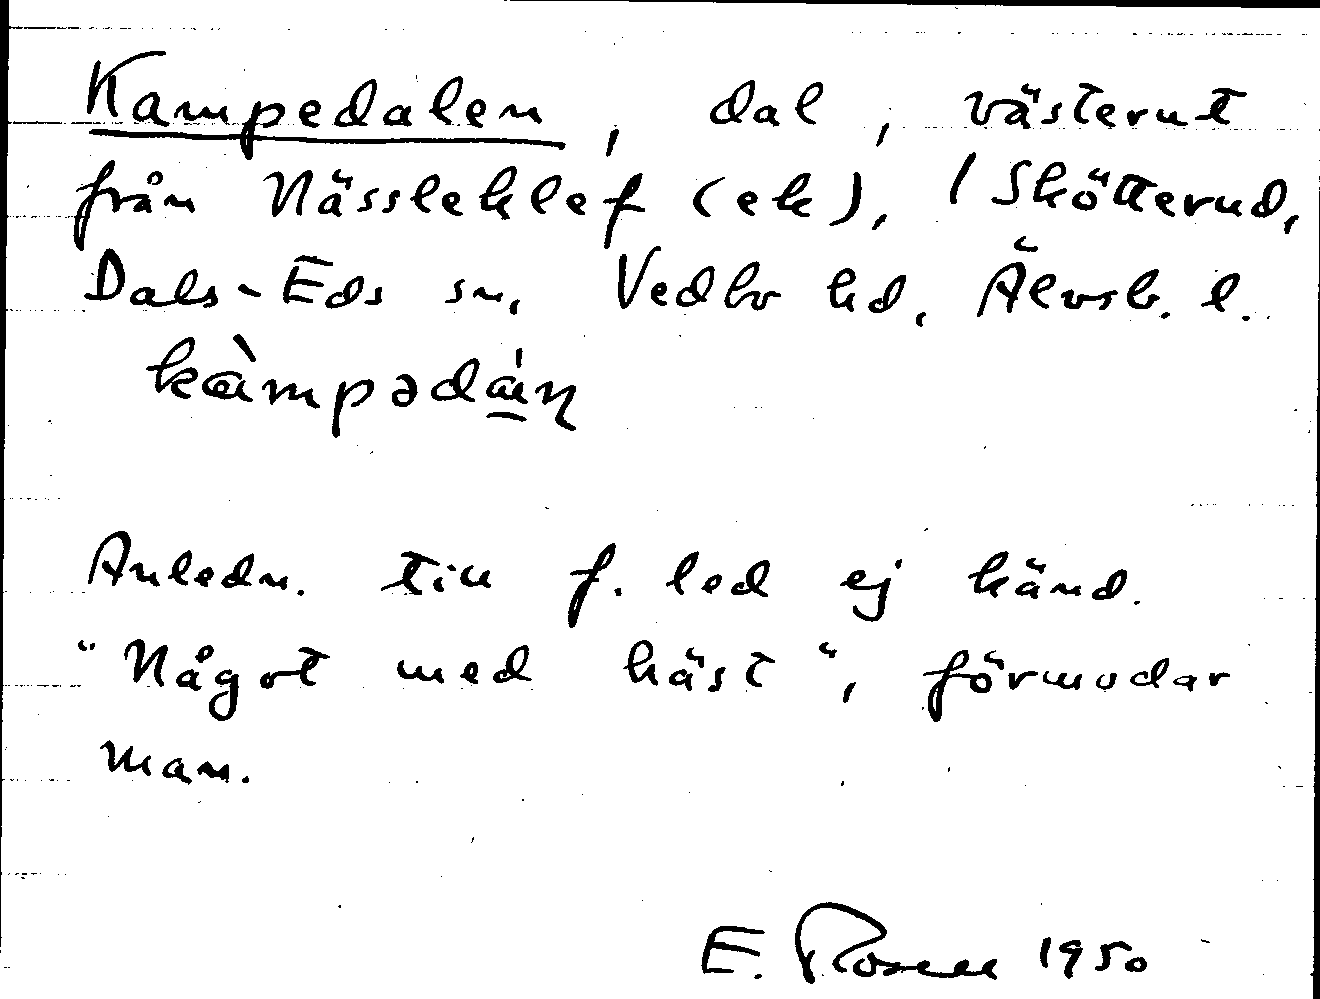 Kampedalen, dal, västerut
från Nässleklef (ek), / Skötterud,
Dals-Eds sn, Vedbo hd, Älvsb. l.
kàmpədán
Anledn. till f. led ej känd.
"Något med häst", förmodar
man.
E. Rosell 1950